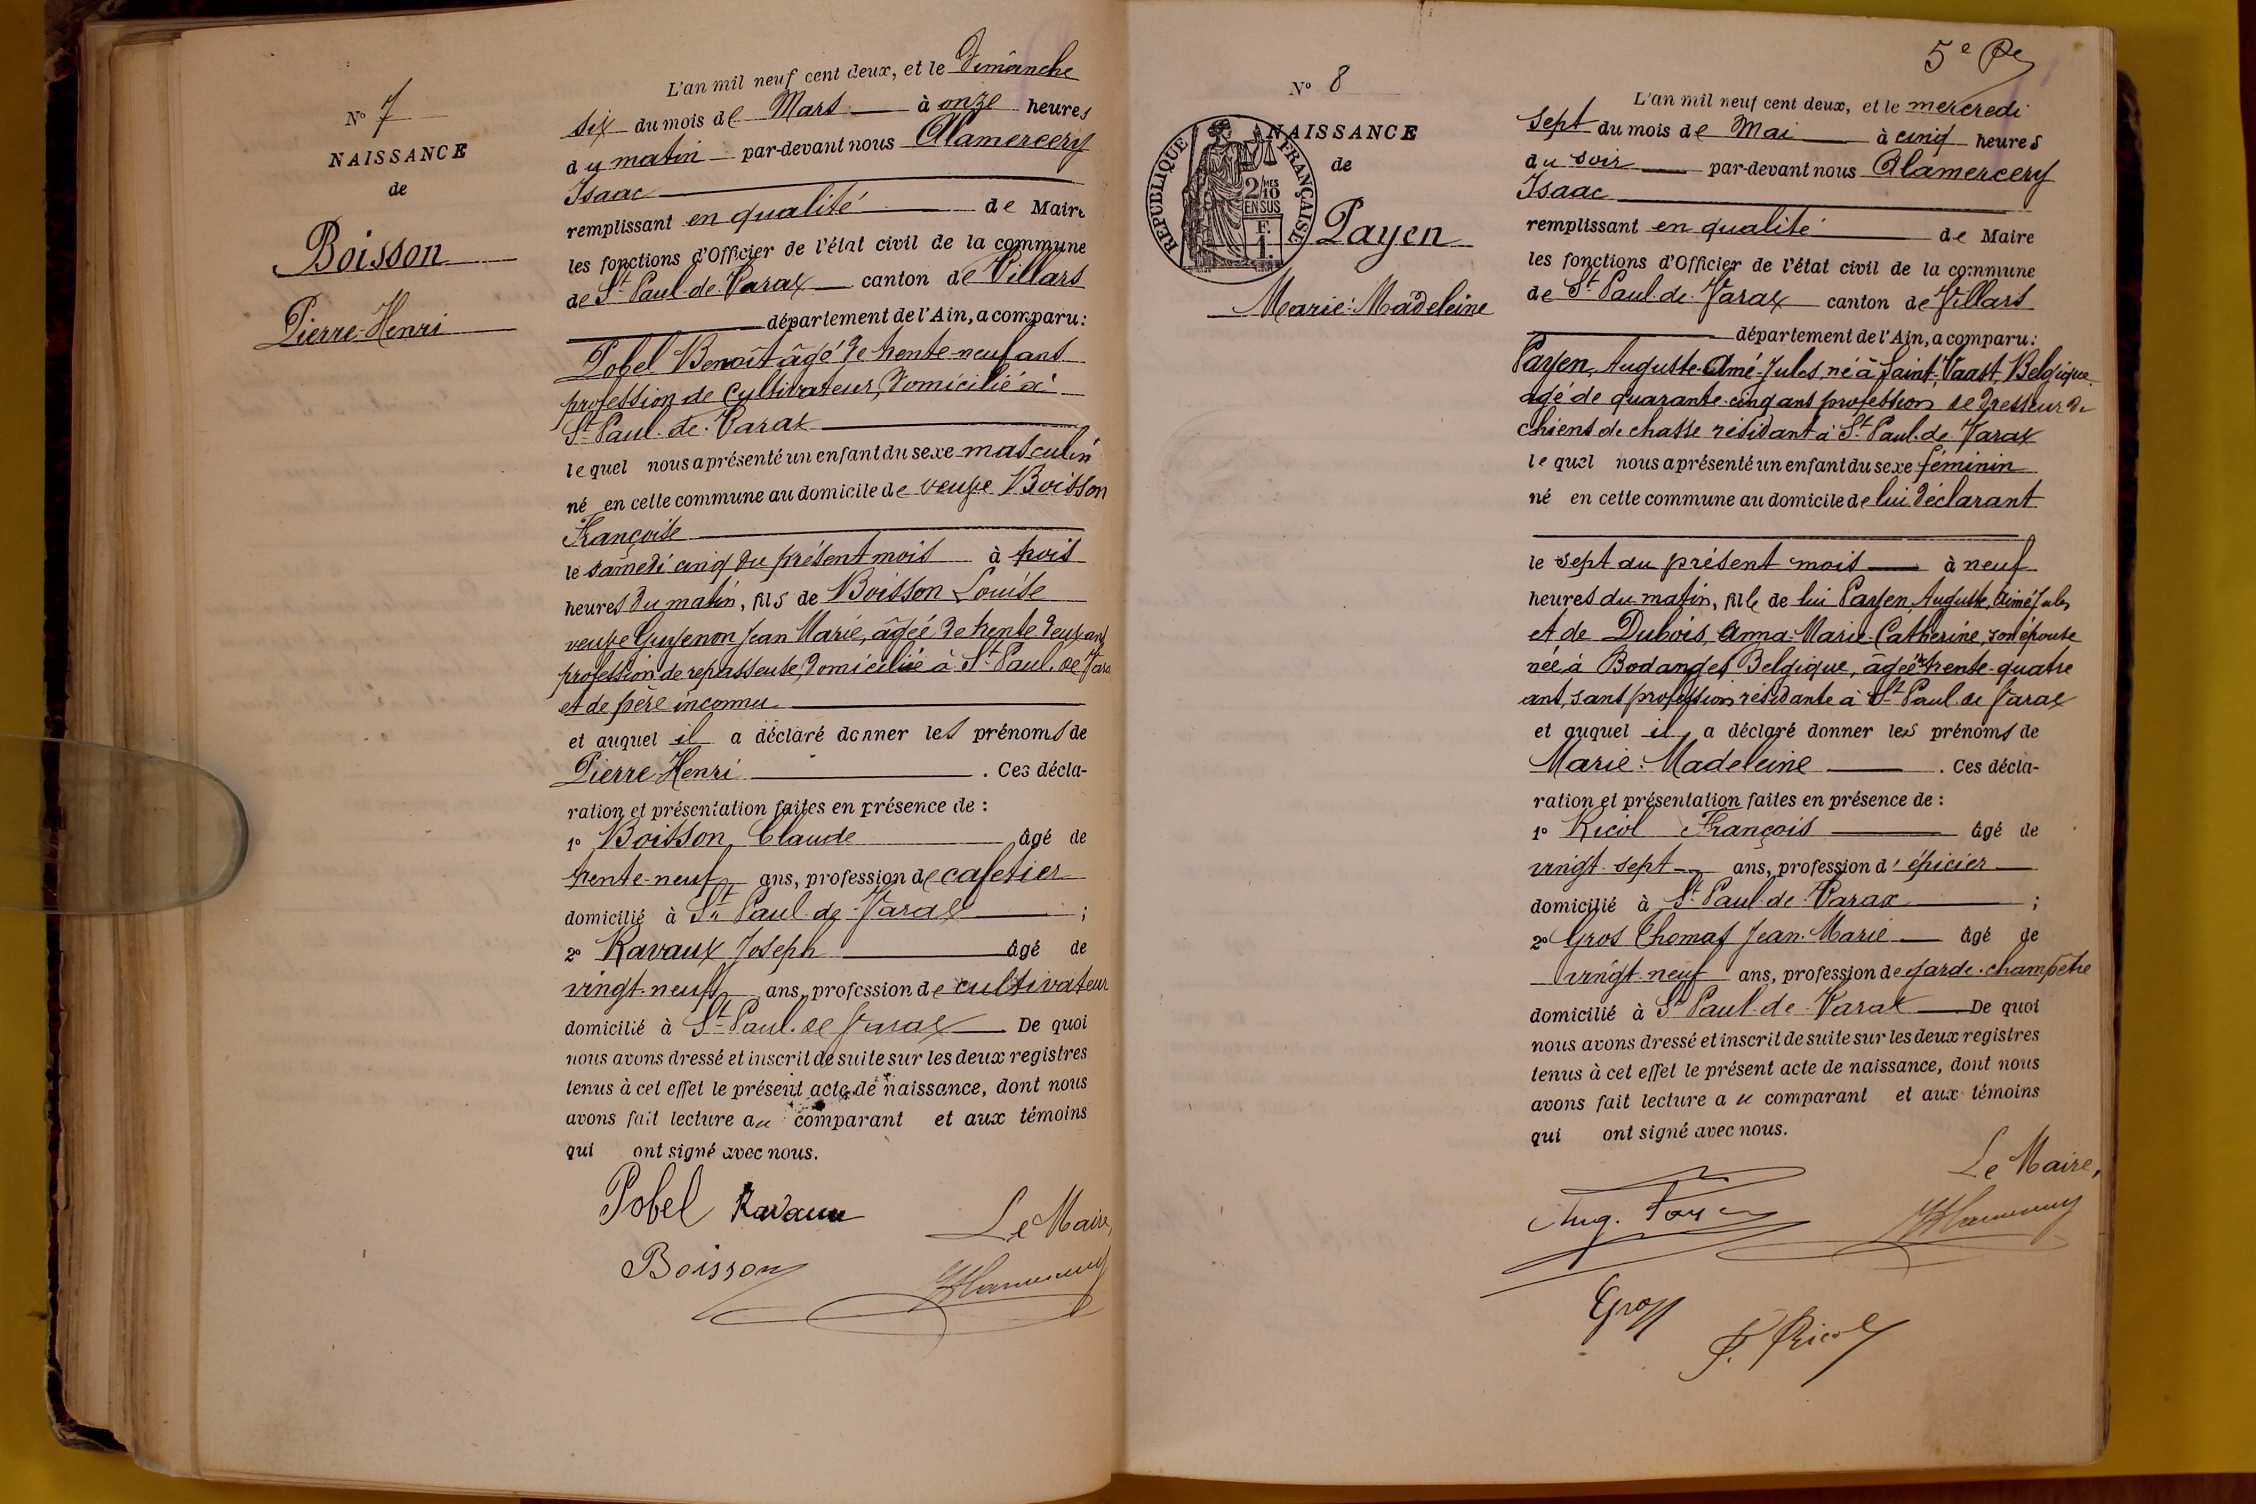 N° 7
NAISSANCE
de
Boisson
Pierre-Henri
L'an mil neuf cent deux, et le Dimanche
six du mois de Mars à onze heures
du matin par-devant nous Alamercery
Isaac
remplissant en qualité de Maire
les fonctions d'Officier de l'état civil de la commune
de St Paul-de-Varax canton de Villars
département de l'Ain, a comparu:
Pobel Benoît âgé de trente-neuf ans
profession de cultivateur, domicilié à
St Paul-de-Varax
lequel nous a présenté un enfant du sexe masculin
né en cette commune au domicile de veuve Boisson
Françoise
le samedi cinq du présent mois à trois
heures du matin, fils de Boisson Louise
veuve Guyenon Jean Marie, âgée de trente deux ans
profession de repasseuse, domiciliée à St Paul-de-Varax
et de père inconnu
et auquel il a déclaré donner les prénoms de
Pierre-Henri . Ces décla-
ration et présentation faites en présence de :
1° Boisson Claude âgé de
trente-neuf ans, profession de cafetier
domicilié à St Paul-de-Varax ;
2° Ravaux Joseph âgé de
vingt-neuf ans, profession de cultivateur
domicilié à St Paul-de Varax De quoi
nous avons dressé et inscrit de suite sur les deux registres
tenus à cet effet le présent acte de naissance, dont nous
avons fait lecture au comparant et aux témoins
qui ont signé avec nous.
Pobel Ravaux
Le Maire,
Boisson
N° 8
NAISSANCE
de
RÉPUBLIQUE FRANÇAISE
2/10 MES
EN SUS
F.
1.
Payen
Marie-Madeleine
5e
L'an mil neuf cent deux, et le mercredi
sept du mois de Mai à cinq heures
du soir par-devant nous Alamercery
Isaac
remplissant en qualité de Maire
les fonctions d'Officier de l'état civil de la commune
de St Paul-de-Varax canton de Villars
département de l'Ain, a comparu:
Payen, Auguste-Aimé-Jules, né à Saint-Vaast, Belgique
âgé de quarante-cinq ans profession de dresseur de
chiens de chasse résidant à St Paul-de Varax
lequel nous a présenté un enfant du sexe féminin
né en cette commune au domicile de lui déclarant
le sept du présent mois à neuf
heures du matin, fille de lui Payen, Auguste, Aimé Jules
et de Dubois, Anna-Marie-Catherine, son épouse
née à Bodanges, Belgique, âgée de trente-quatre
ans, sans profession résidante à St Paul de Varax
et auquel il a déclaré donner les prénoms de
Marie-Madeleine . Ces décla-
ration et présentation faites en présence de :
1° Ricol François âgé de
vingt-sept ans, profession d'épicier
domicilié à St Paul-de-Varax ;
2° Gros Thomas Jean-Marie âgé de
vingt-neuf ans, profession de garde-champêtre
domicilié à St Paul-de-Varax De quoi
nous avons dressé et inscrit de suite sur les deux registres
tenus à cet effet le présent acte de naissance, dont nous
avons fait lecture au comparant et aux témoins
qui ont signé avec nous.
Le Maire,
Aug. Payen
Gros
F. Ricol